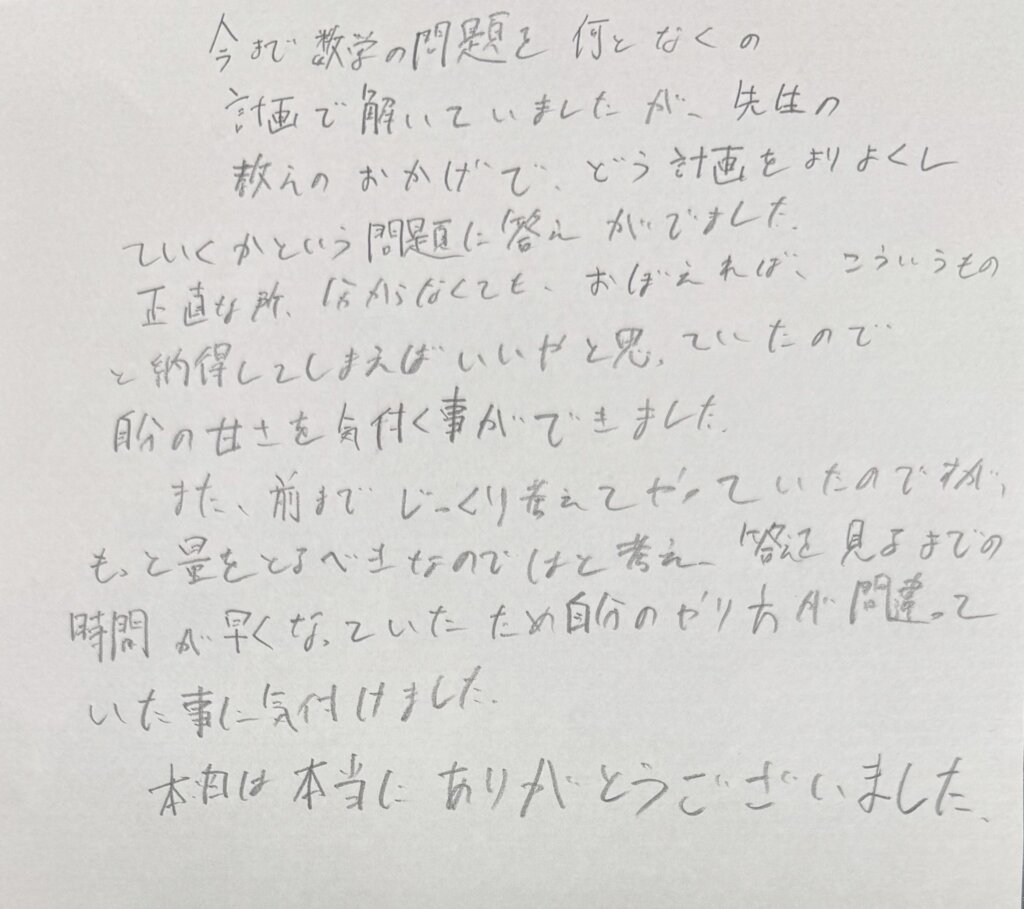 今まで数学の問題を何となくの
計画で解いていましたが、先生の
教えのおかげで、どう計画をよりよくし
ていくかという問題に答えがでました。
正直な所、分からなくても、おぼえれば、こういうもの
と納得してしまえばいいやと思っていたので
自分の甘さを気付く事ができました。
また、前までじっくり考えてやっていたのですが、
もっと量をとるべきなのではと考え、答えを見るまでの
時間が早くなっていたため自分のやり方が間違って
いた事に気付けました。
本日は本当にありがとうございました。